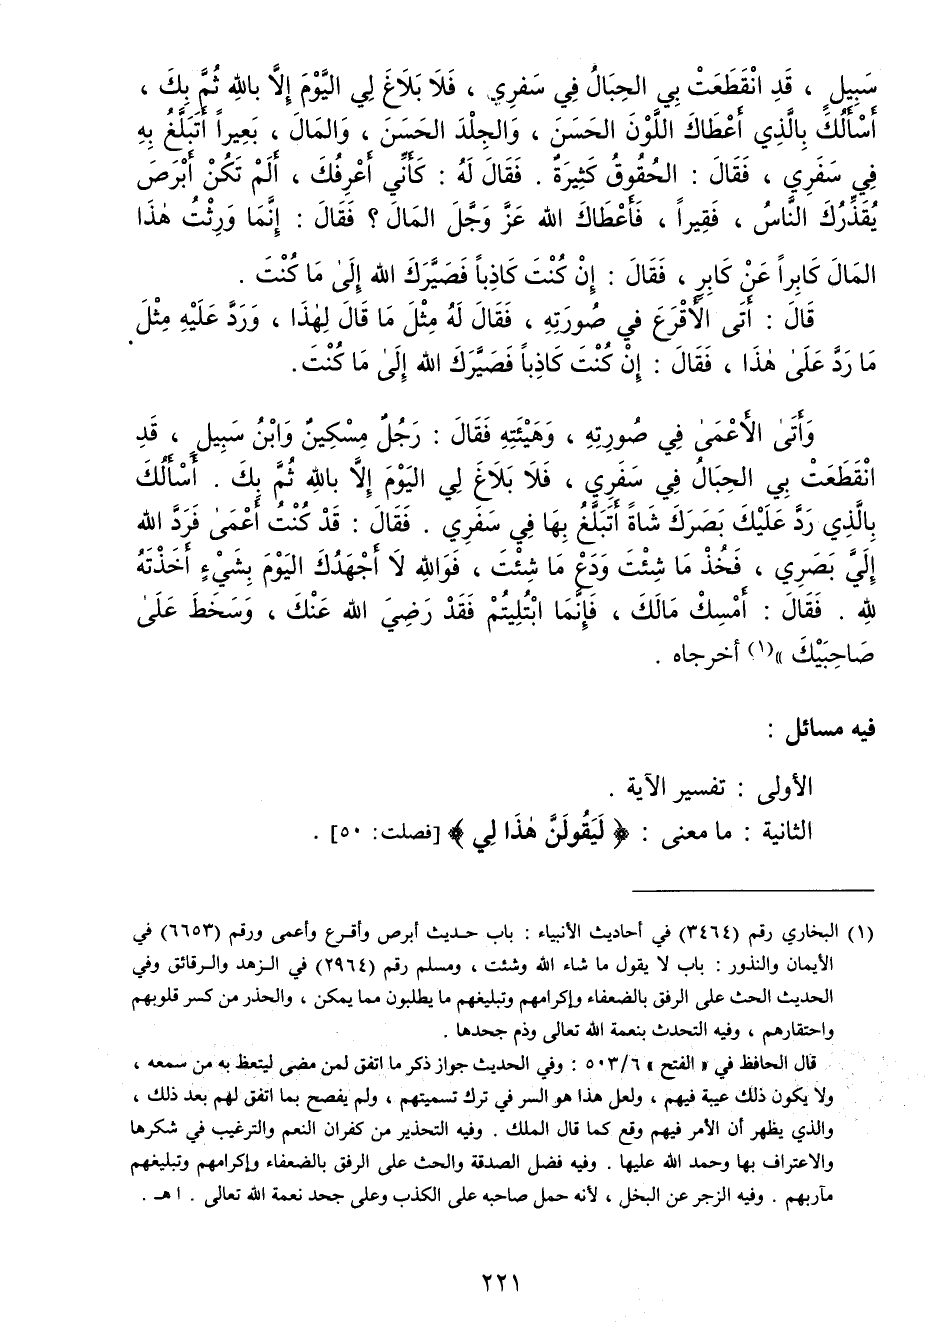 سَبِيلٍ ، قَدِ انْقَطَعَتْ بِي الحِبَالُ فِي سَفَرِي ، فَلَا بَلَاغَ لِي اليَّوْمَ إِلَّا بالله ثُمَّ بِكَ ،
أَسْأَلُكَ بِالَّذِي أَعْطَاكَ اللَّوْنَ الحَسَنَ ، وَالجِلْدَ الحَسَنَ ، وَالمَالَ ، بَعِيراً أَتَبَلَّغُ بِهِ
فِي سَفَرِي ، فَقَالَ : الحُقُوقُ كَثِيرَةٌ . فَقَالَ لَهُ : كَأَنِّي أَعْرِفُكَ ، أَلَمْ تَكُنْ أَبْرَصَ
يُقَذِّرُكَ النَّاسُ ، فَقِيراً ، فَأَعْطَاكَ الله عَزَّ وَجَلَّ المَالَ ؟ فَقَالَ : إِنَّمَا وَرِثْتُ هٰذَا
المَالَ كَابِراً عَنْ كَابِرٍ ، فَقَالَ : إِنْ كُنْتَ كَاذِباً فَصَيَّرَكَ الله إِلَىٰ مَا كُنْتَ .
قَالَ : أَتَى الأَقْرَعَ في صُورَتِهِ ، فَقَالَ لَهُ مِثْلَ مَا قَالَ لِهٰذَا ، وَرَدَّ عَلَيْهِ مِثْلَ
مَا رَدَّ عَلَىٰ هٰذَا ، فَقَالَ : إِنْ كُنْتَ كَاذِباً فَصَيَّرَكَ الله إِلَىٰ مَا كُنْتَ .
وَأَتَىٰ الأَعْمَىٰ فِي صُورِتِهِ ، وَهَيْئَتِهِ فَقَالَ : رَجُلٌ مِسْكِينٌ وَابْنُ سَبِيلٍ ، قَدِ
انْقَطَعَتْ بِي الحِبَالُ فِي سَفَرِي ، فَلَا بَلَاغَ لِي اليَوْمَ إِلَّا بالله ثُمَّ بِكَ . أَسْأَلُكَ
بِالَّذِي رَدَّ عَلَيْكَ بَصَرَكَ شَاةً أَتَبَلَّغُ بِهَا فِي سَفَرِي . فَقَالَ : قَدْ كُنْتُ أَعْمَىٰ فَرَدَّ الله
إِلَيَّ بَصَرِي ، فَخُذْ مَا شِئْتَ وَدَعْ مَا شِئْتَ ، فَوَالله لَا أَجْهَدُكَ اليَوْمَ بِشَيْءٍ أَخَذْتَهُ
لله . فَقَالَ : أَمْسِكْ مَالَكَ ، فَإِنَّمَا ابْتُلِيتُمْ فَقَدْ رَضِيَ الله عَنْكَ ، وَسَخَطَ عَلَىٰ
صَاحِبَيْكَ »(١) أخرجاه .
فيه مسائل :
الأولى : تفسير الآية .
الثانية : ما معنى : ﴿ لَيَقُولَنَّ هٰذَا لِي ﴾ [فصلت: ٥٠] .
(١) البخاري رقم (٣٤٦٤) في أحاديث الأنبياء : باب حديث أبرص وأقرع وأعمى ورقم (٦٦٥٣) في
الأيمان والنذور : باب لا يقول ما شاء الله وشئت ، ومسلم رقم (٢٩٦٤) في الزهد والرقائق وفي
الحديث الحث على الرفق بالضعفاء وإكرامهم وتبليغهم ما يطلبون مما يمكن ، والحذر من كسر قلوبهم
واحتقارهم ، وفيه التحدث بنعمة الله تعالى وذم جحدها .
قال الحافظ في « الفتح » ٥٠٣/٦ : وفي الحديث جواز ذكر ما اتفق لمن مضى ليتعظ به من سمعه ،
ولا يكون ذلك عيبة فيهم ، ولعل هذا هو السر في ترك تسميتهم ، ولم يفصح بما اتفق لهم بعد ذلك ،
والذي يظهر أن الأمر فيهم وقع كما قال الملك . وفيه التحذير من كفران النعم والترغيب في شكرها
والاعتراف بها وحمد الله عليها . وفيه فضل الصدقة والحث على الرفق بالضعفاء وإكرامهم وتبليغهم
مآربهم . وفيه الزجر عن البخل ، لأنه حمل صاحبه على الكذب وعلى جحد نعمة الله تعالى . ا هـ .
٢٢١